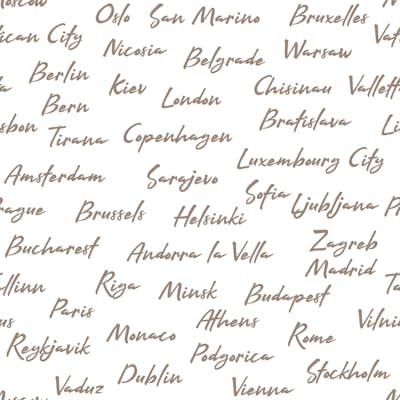 Moscow
Oslo San Marino Bruxelles
Vatican City Nicosia Belgrade Warsaw
Berlin Kiev London Chisinau Valletta
Bern Bratislava
Lisbon Tirana Copenhagen
Luxembourg City
Amsterdam Sarajevo
Prague Brussels Helsinki Sofia Ljubljana
Bucharest Andorra la Vella Zagreb
Madrid
Tallinn Riga Minsk Budapest
Paris Athens Vilnius
Reykjavik Monaco Podgorica Rome
Vaduz Dublin Vienna Stockholm